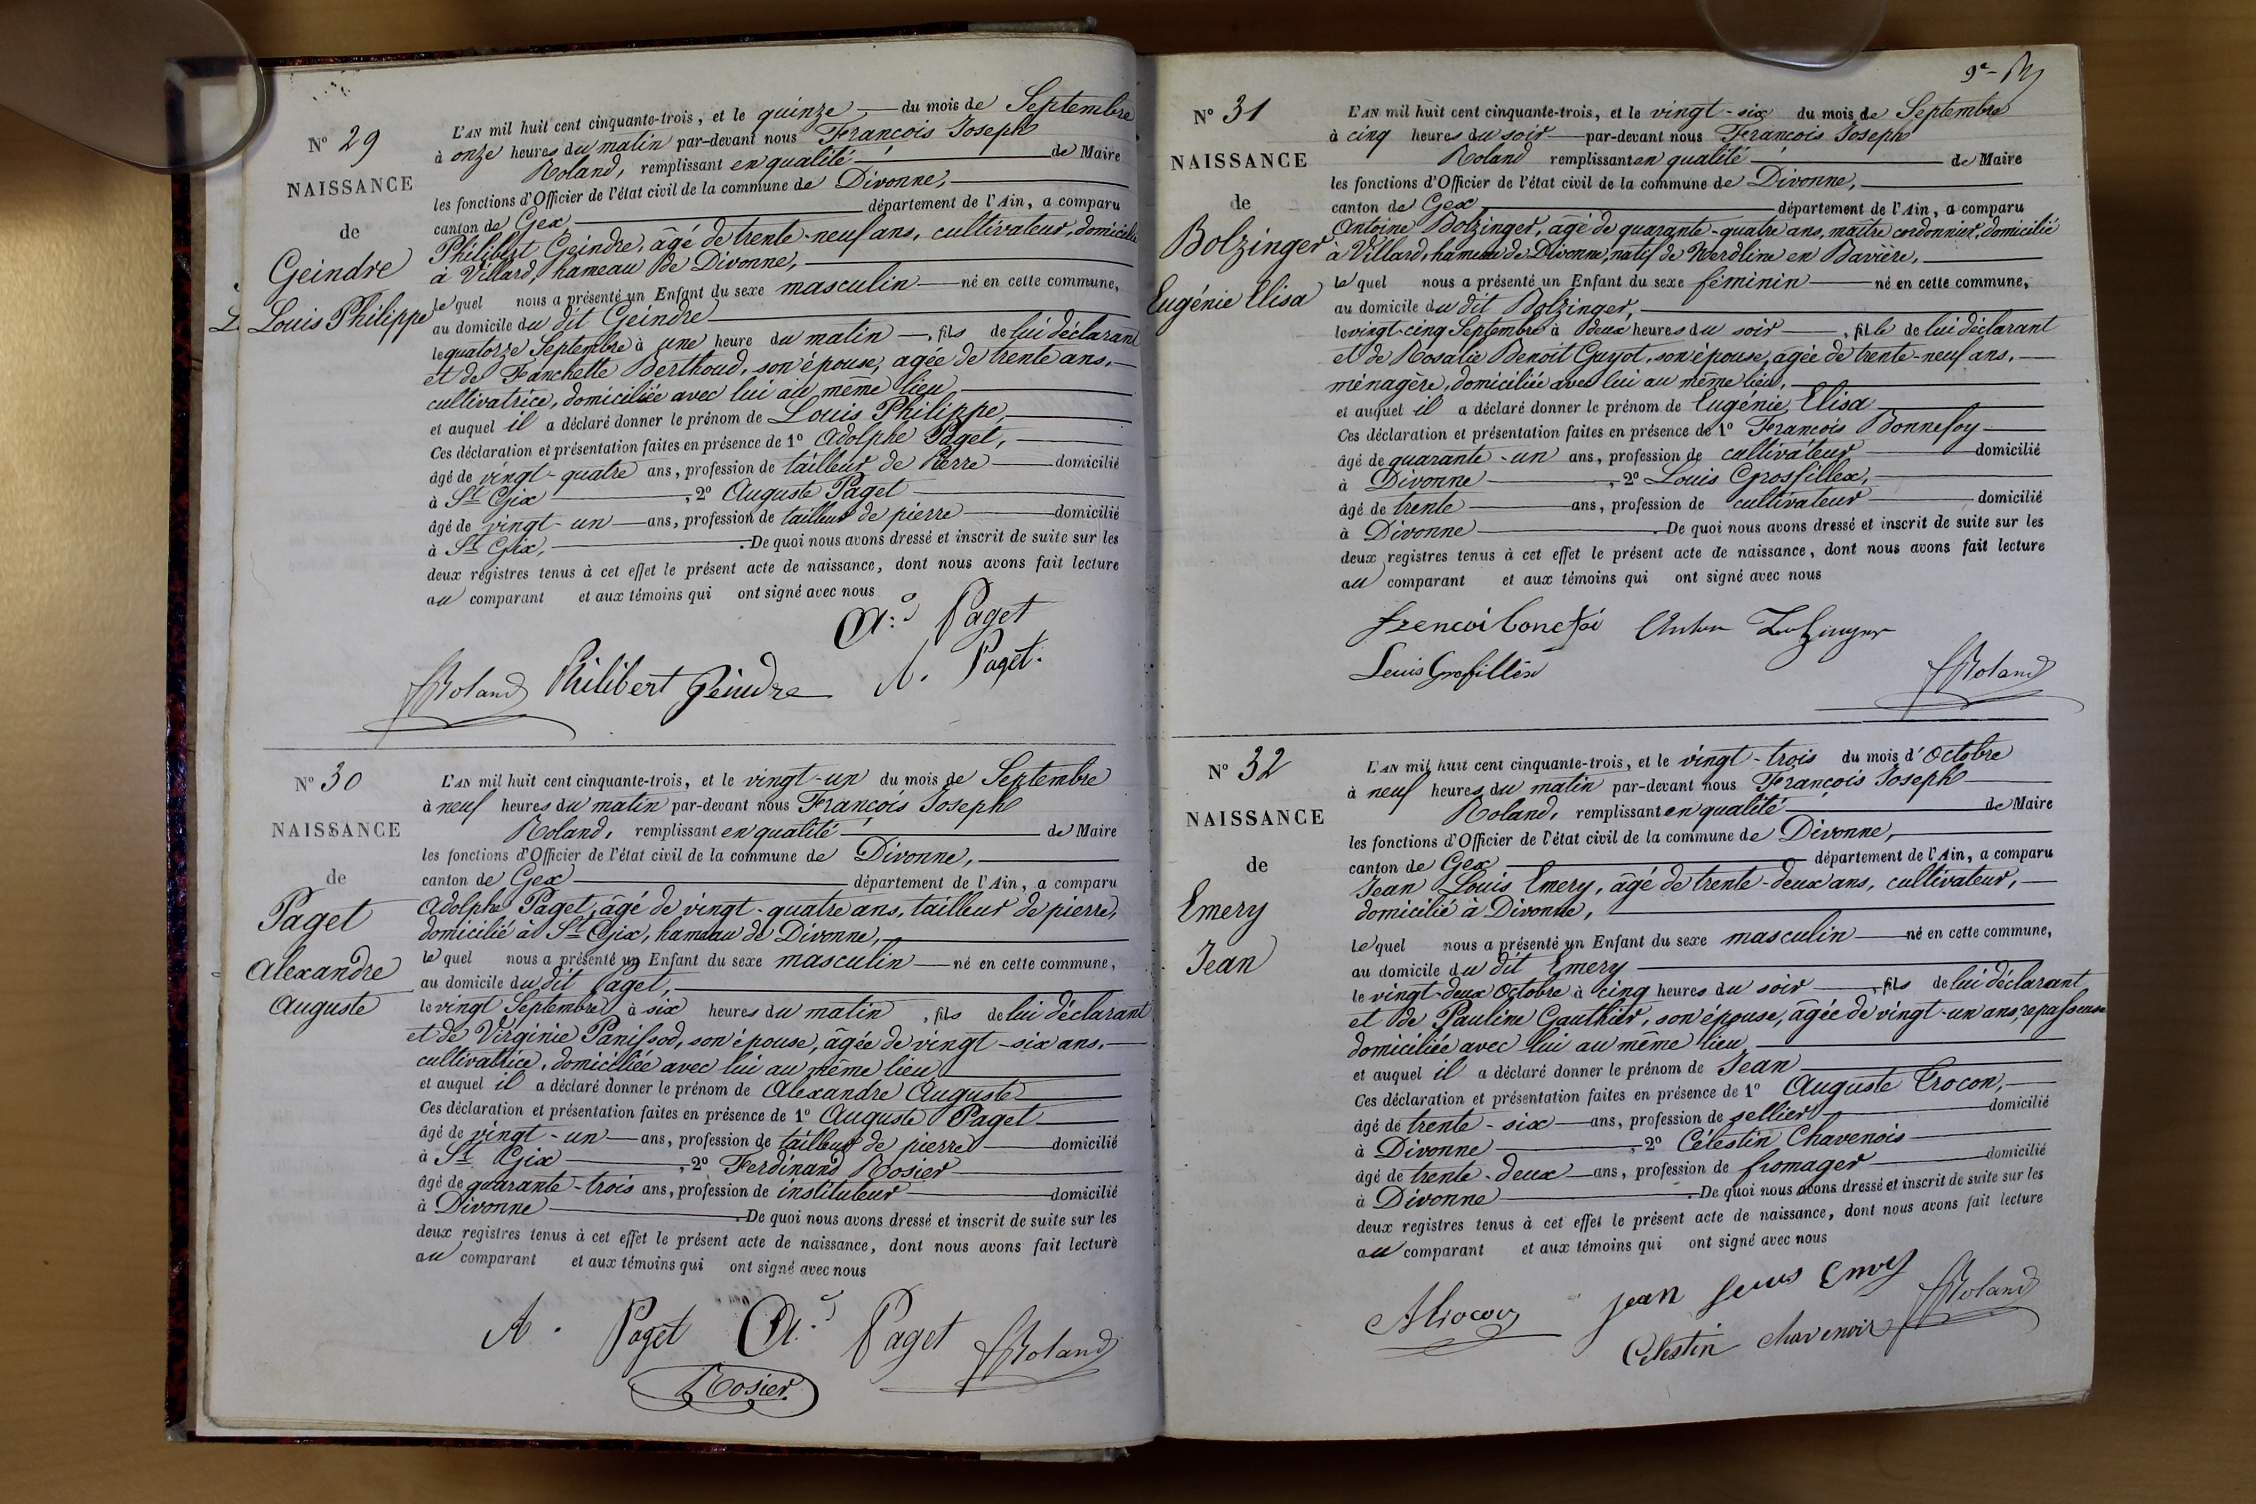 N° 29
NAISSANCE
de
Geindre
Louis Philippe
L'AN mil huit cent cinquante-trois, et le quinze du mois de Septembre
à onze heures du matin par-devant nous François Joseph
Roland, remplissant en qualité de Maire
les fonctions d'Officier de l'état civil de la commune de Divonne,
canton de Gex département de l'Ain, a comparu
Philibert Geindre, âgé de trente-neuf ans, cultivateur, domicilié
à Villard, hameau de Divonne,
lequel nous a présenté un Enfant du sexe masculin né en cette commune,
au domicile du dit Geindre
le quatorze Septembre à une heure du matin, fils de lui déclarant
et de Fanchette Berthoud, son épouse, agée de trente ans,
cultivatrice, domiciliée avec lui au même lieu
et auquel il a déclaré donner le prénom de Louis Philippe,
Ces déclaration et présentation faites en présence de 1° Adolphe Paget,
âgé de vingt-quatre ans, profession de tailleur de Pierre domicilié
à St Gix, 2° Auguste Paget
âgé de vingt-un ans, profession de tailleur de pierre domicilié
à St Gix, . De quoi nous avons dressé et inscrit de suite sur les
deux registres tenus à cet effet le présent acte de naissance, dont nous avons fait lecture
au comparant et aux témoins qui ont signé avec nous
Paget
Roland Philibert Geindre A. Paget.
N° 30
NAISSANCE
de
Paget
Alexandre
Auguste
L'AN mil huit cent cinquante-trois, et le vingt-un du mois de Septembre
à neuf heures du matin par-devant nous François Joseph
Roland, remplissant en qualité de Maire
les fonctions d'Officier de l'état civil de la commune de Divonne,
canton de Gex département de l'Ain, a comparu
Adolphe Paget, âgé de vingt-quatre ans, tailleur de pierre,
domicilié à St Gix, hameau de Divonne,
lequel nous a présenté un Enfant du sexe masculin né en cette commune,
au domicile du dit Paget,
le vingt Septembre à six heures du matin, fils de lui déclarant
et de Virginie Panissod, son épouse, âgée de vingt-six ans,
cultivatrice, domiciliée avec lui au même lieu
et auquel il a déclaré donner le prénom de Alexandre Auguste
Ces déclaration et présentation faites en présence de 1° Auguste Paget
âgé de vingt-un ans, profession de tailleur de pierre domicilié
à St Gix, 2° Ferdinand Rosier
âgé de quarante-trois ans, profession de instituteur domicilié
à Divonne . De quoi nous avons dressé et inscrit de suite sur les
deux registres tenus à cet effet le présent acte de naissance, dont nous avons fait lecture
au comparant et aux témoins qui ont signé avec nous
A. Paget Paget Roland
Rosier
9e
N° 31
NAISSANCE
de
Bolzinger
Eugénie Elisa
L'AN mil huit cent cinquante-trois, et le vingt-six du mois de Septembre
à cinq heures du soir par-devant nous François Joseph
Roland remplissant en qualité de Maire
les fonctions d'Officier de l'état civil de la commune de Divonne,
canton de Gex département de l'Ain, a comparu
Antoine Bolzinger, âgé de quarante-quatre ans, maître cordonnier, domicilié
à Villard, hameau de Divonne, natif de Nerdline en Bavière,
lequel nous a présenté un Enfant du sexe féminin né en cette commune,
au domicile du dit Bolzinger,
le vingt-cinq Septembre à deux heures du soir, fille de lui déclarant
et de Rosalie Benoit Guyot, son épouse, agée de trente-neuf ans,
ménagère, domiciliée avec lui au même lieu,
et auquel il a déclaré donner le prénom de Eugénie, Elisa
Ces déclaration et présentation faites en présence de 1° François Bonnefoy
âgé de quarante-un ans, profession de cultivateur domicilié
à Divonne, 2° Louis Grosfillex,
âgé de trente ans, profession de cultivateur domicilié
à Divonne . De quoi nous avons dressé et inscrit de suite sur les
deux registres tenus à cet effet le présent acte de naissance, dont nous avons fait lecture
au comparant et aux témoins qui ont signé avec nous
Louis Grosfillex Roland
N° 32
NAISSANCE
de
Emery
Jean
L'AN mil huit cent cinquante-trois, et le vingt-trois du mois d'Octobre
à neuf heures du matin par-devant nous François Joseph
Roland, remplissant en qualité de Maire
les fonctions d'Officier de l'état civil de la commune de Divonne,
canton de Gex département de l'Ain, a comparu
Jean Louis Emery, âgé de trente-deux ans, cultivateur,
domicilié à Divonne,
lequel nous a présenté un Enfant du sexe masculin né en cette commune,
au domicile du dit Emery
le vingt-deux Octobre à cinq heures du soir, fils de lui déclarant
et de Pauline Gauthier, son épouse, âgée de vingt-un ans, repasseuse
domiciliée avec lui au même lieu
et auquel il a déclaré donner le prénom de Jean
Ces déclaration et présentation faites en présence de 1° Auguste Trocon,
âgé de trente-six ans, profession de sellier domicilié
à Divonne, 2° Célestin Chavenois
âgé de trente-deux ans, profession de fromager domicilié
à Divonne . De quoi nous avons dressé et inscrit de suite sur les
deux registres tenus à cet effet le présent acte de naissance, dont nous avons fait lecture
au comparant et aux témoins qui ont signé avec nous
Roland
Célestin chavenois